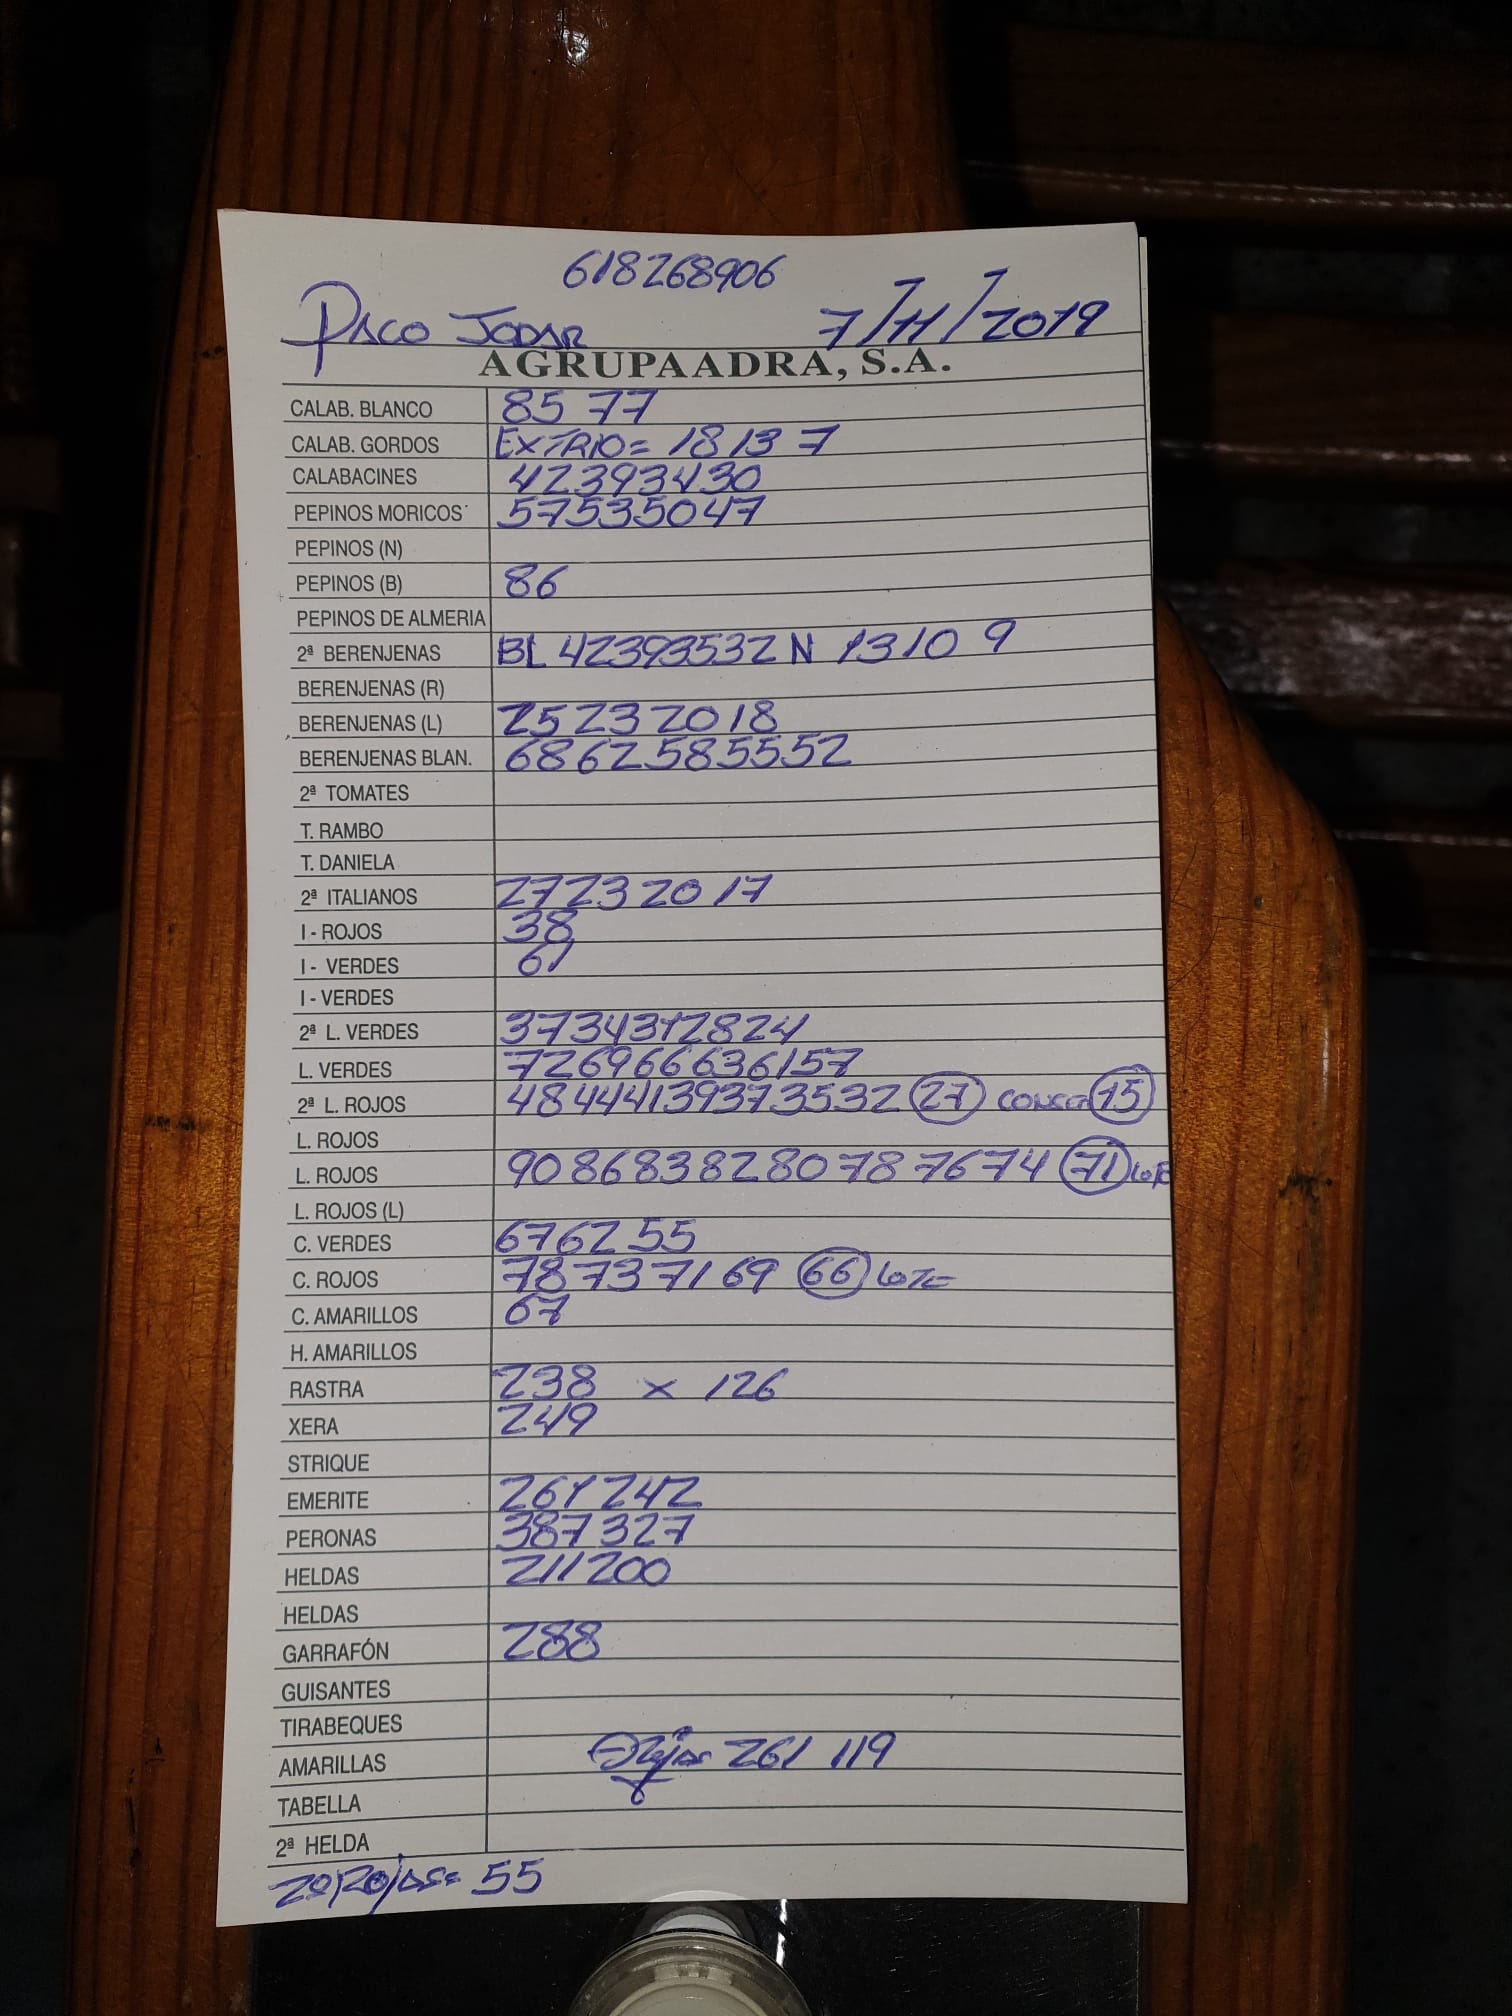 618268906
PACO JODAR 7/11/2019
AGRUPAADRA, S.A.
CALAB. BLANCO 85 77
CALAB. GORDOS EXTRIO= 18 13 7
CALABACINES 42393430
PEPINOS MORICOS 57535047
PEPINOS (N)
PEPINOS (B) 86
PEPINOS DE ALMERIA
2ª BERENJENAS BL 42393532 N 13 10 9
BERENJENAS (R)
BERENJENAS (L) 25 23 20 18
BERENJENAS BLAN. 6862585552
2ª TOMATES
T. RAMBO
T. DANIELA
2ª ITALIANOS 2723 20 17
I - ROJOS 38
I - VERDES 61
I - VERDES
2ª L. VERDES 3734312824
L. VERDES 726966636157
2ª L. ROJOS 48444139373532 27 15
L. ROJOS
L. ROJOS 908683828078 7674 71 LOTE
L. ROJOS (L)
C. VERDES 6762 55
C. ROJOS 78737169 66 LOTE
C. AMARILLOS 67
H. AMARILLOS
RASTRA 238 x 126
XERA 249
STRIQUE
EMERITE 261 242
PERONAS 387 327
HELDAS 211 200
HELDAS
GARRAFÓN 288
GUISANTES
TIRABEQUES
AMARILLAS 261 119
TABELLA
2ª HELDA
2º Rojas= 55